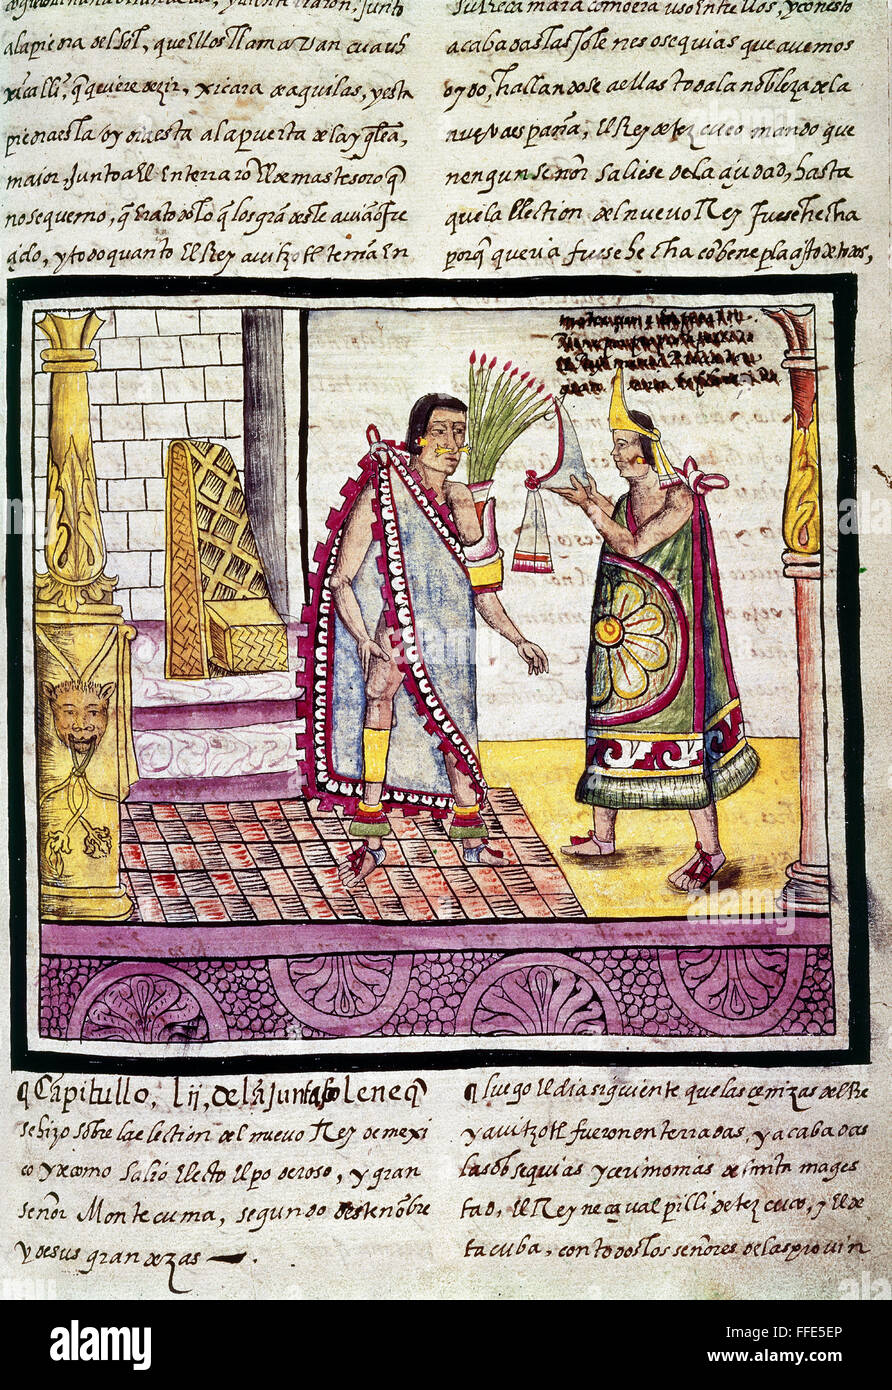 alapiedra del Sol, que Ellos llamavan cuauh
xicalli, q̃ quiere dezir, xicara de aguilas, y esta
piedra esta oy dia esta ala puerta de la ygleᵃ,
maior, Junto a Ella Enterraro El de mas tesoro q̃
no se quemo, q̃ Era todo lo q̃ los grãdes le avian ofre
çido, y todo quanto El Rey avitzotl tenia En
acabadas las solenes osequias que avemos
oydo, hallandose a ellas toda la nobleza de la
nueva españa, El Rey de tezcuco mando que
nengun señor saliese de la çiudad, hasta
que la Election del nuevo Rey fuese hecha
porq̃ queria fuese hecha cõ beneplaçito de todos,
¶ Capitullo, lij, de la Junta solene q̃
se hizo sobre la election del nuevo Rey de mexi
co y de como salio Electo El poderoso, y gran
señor Montecuma, segundo deste nõbre
y de sus grandezas
¶ luego El dia siguiente que las çenizas del Re
y avitzotl fueron enterradas, y acabadas
las obsequias y cerimonias de su mages
tad, El Rey neçaualpilli de tezcuco, y El de
tacuba, con todos los señores de las provin
alamy
alamy
Image ID: FFE5EP
www.alamy.com